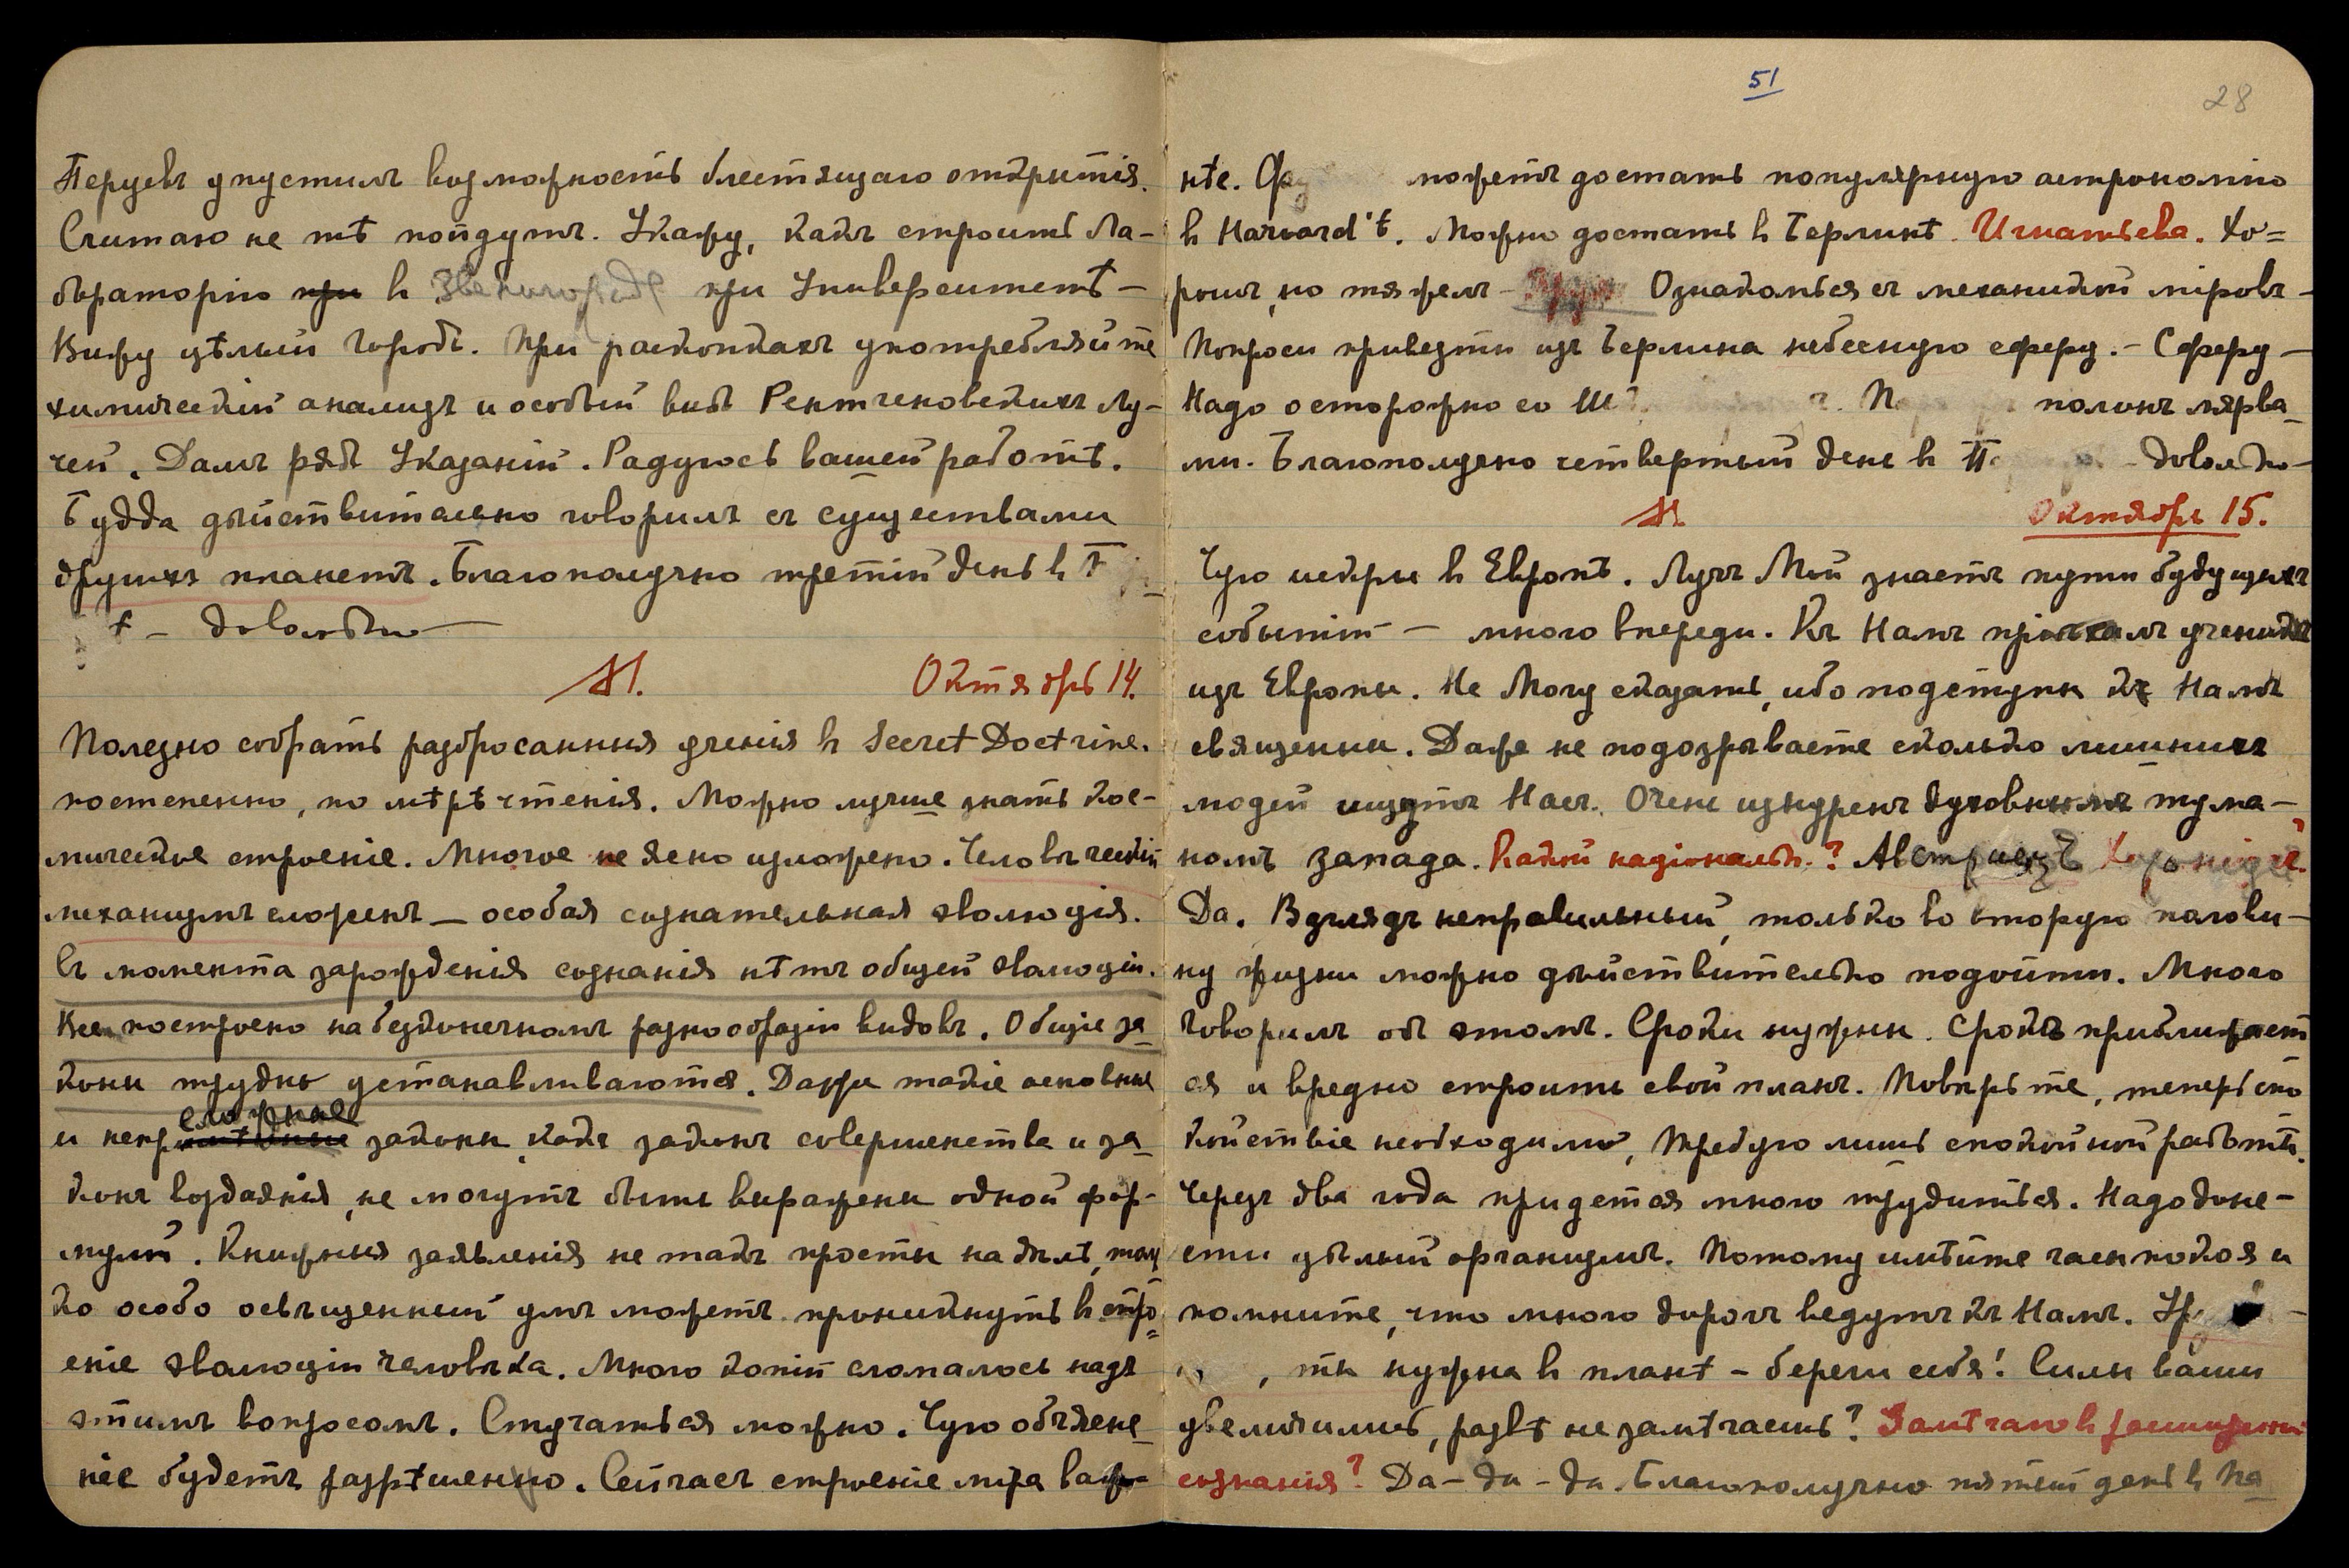 упустилъ возможность блестящаго открытія.
Считаю не тѣ пойдутъ. Укажу, какъ строить Ла-
бораторію при в Звенигородѣ при Университетѣ —
Вижу цѣлый городъ. При раскопкахъ употребляйте
химическій анализъ и особый видъ Рентгеновскихъ лу-
чей. Далъ рядъ Указаній. Радуюсь вашей работѣ.
Будда дѣйствительно говорилъ съ существами
другихъ планетъ. Благополучно третій день в
— довольно —
М. Октябрь 14.
Полезно собрать разбросанныя ученія в Secret Doctrine.
постепенно, по мѣрѣ чтенія. Можно лучше знать кос-
мическое строеніе. Многое не ясно изложено. Человѣческій
механизмъ сложенъ — особая сознательная эволюція.
Съ момента зарожденія сознанія нѣтъ общей эволюціи.
Все построено на безконечномъ разнообразіи видовъ. Общіе за-
коны трудно устанавливаются. Даже такіе основные
сложные
и законы, какъ законъ совершенства и за-
конъ воздаянія, не могутъ быть выражены одной фор-
мулой. Книжныя заявленія не такъ просты на дѣлѣ, толь
ко особо освѣщенный умъ можетъ проникнуть в стро-
еніе эволюціи человѣка. Много копій сломалось надъ
этимъ вопросомъ. Стучаться можно. Чую объясне-
ніе будетъ разрѣшено. Сейчасъ строеніе міра важ-
51
28
нѣе. можетъ достать популярную астрономію
в Harvard'ѣ. Можно достать в Берлинѣ. Игнатьева. Хо=
рошъ, но тяжелъ — Ознакомься съ механикой міровъ —
Попроси привезти изъ Берлина небесную сферу. — Сферу —
Надо осторожно со полонъ лярва-
ми. Благополучно четвертый день в — довольно —
М Октябрь 15.
Чую искры в Европѣ. Лучъ Мой знаетъ пути будущихъ
событій — много впереди. Къ Намъ пріѣхалъ ученикъ
изъ Европы. Не Могу сказать, ибо подступы къ Намъ
священны. Даже не подозрѣваете сколько лишнихъ
людей ищутъ Насъ. Очень изнуренъ духовнымъ тума-
номъ запада. Какой національн.? Австріецъ
Да. Взглядъ неправильный, только во вторую полови-
ну жизни можно дѣйствительно подойти. Много
говорилъ объ этомъ. Сроки нужны. Срокъ приближает
ся и вредно строить свой планъ. Повѣрьте, теперь спо
койствіе необходимо, Требую лишь спокойной работы.
Черезъ два года придется много трудиться. Надо доне-
сти цѣлый организмъ. Потому имѣйте часы покоя и
помните, что много дорогъ ведутъ къ Намъ.
, ты нужна в планѣ — береги себя! Силы ваши
увеличились, развѣ не замѣчаешь? Замѣчаю в расширеніи
сознанія? Да — да — да. Благополучно пятый день в На